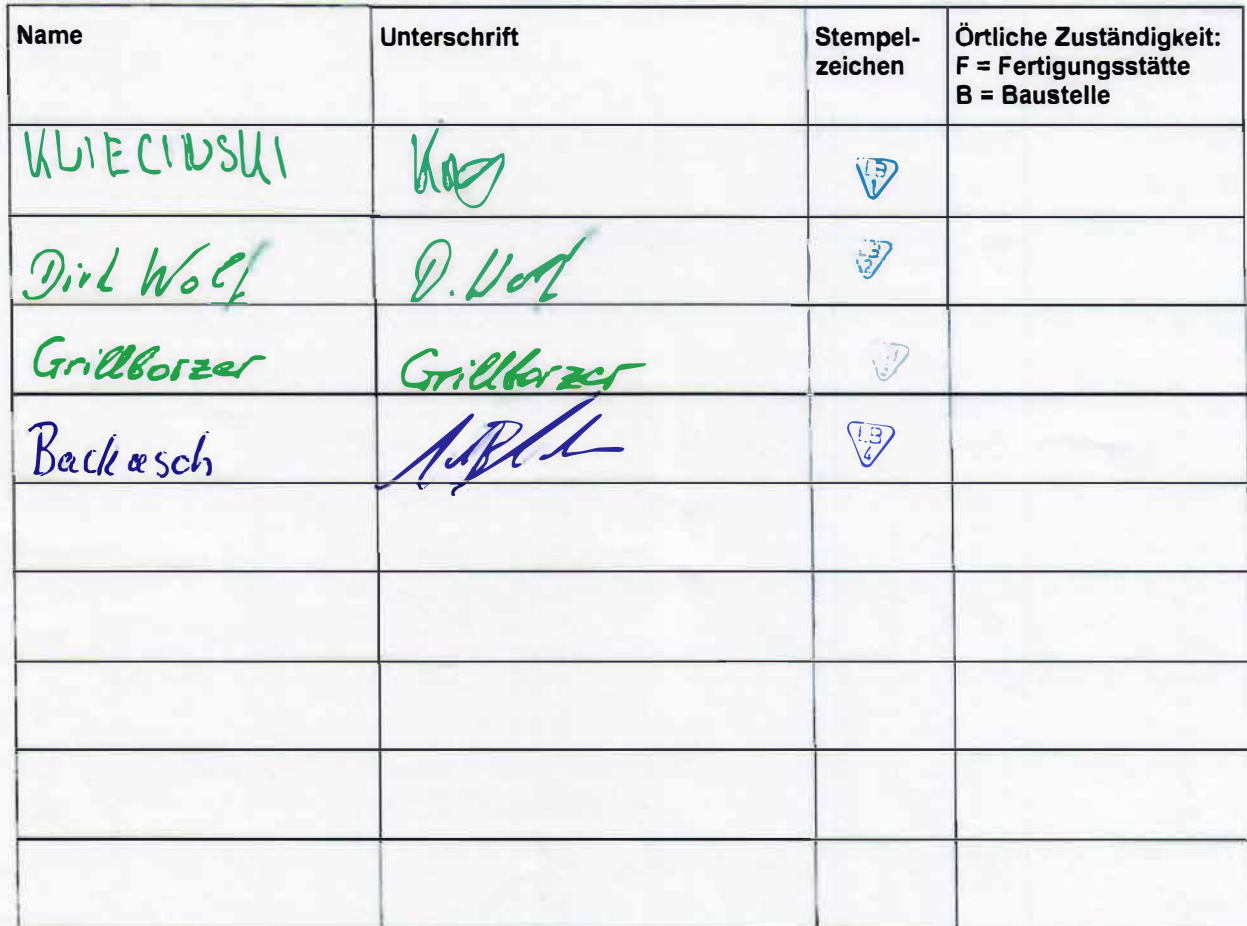 Name
Unterschrift
Stempel-
zeichen
Örtliche Zuständigkeit:
F = Fertigungsstätte
B = Baustelle
KLIECINSKI
LB
1
Dirk Wolf
D. Wolf
LB
2
Grillborzer
Grillborzer
Backasch
LB
4